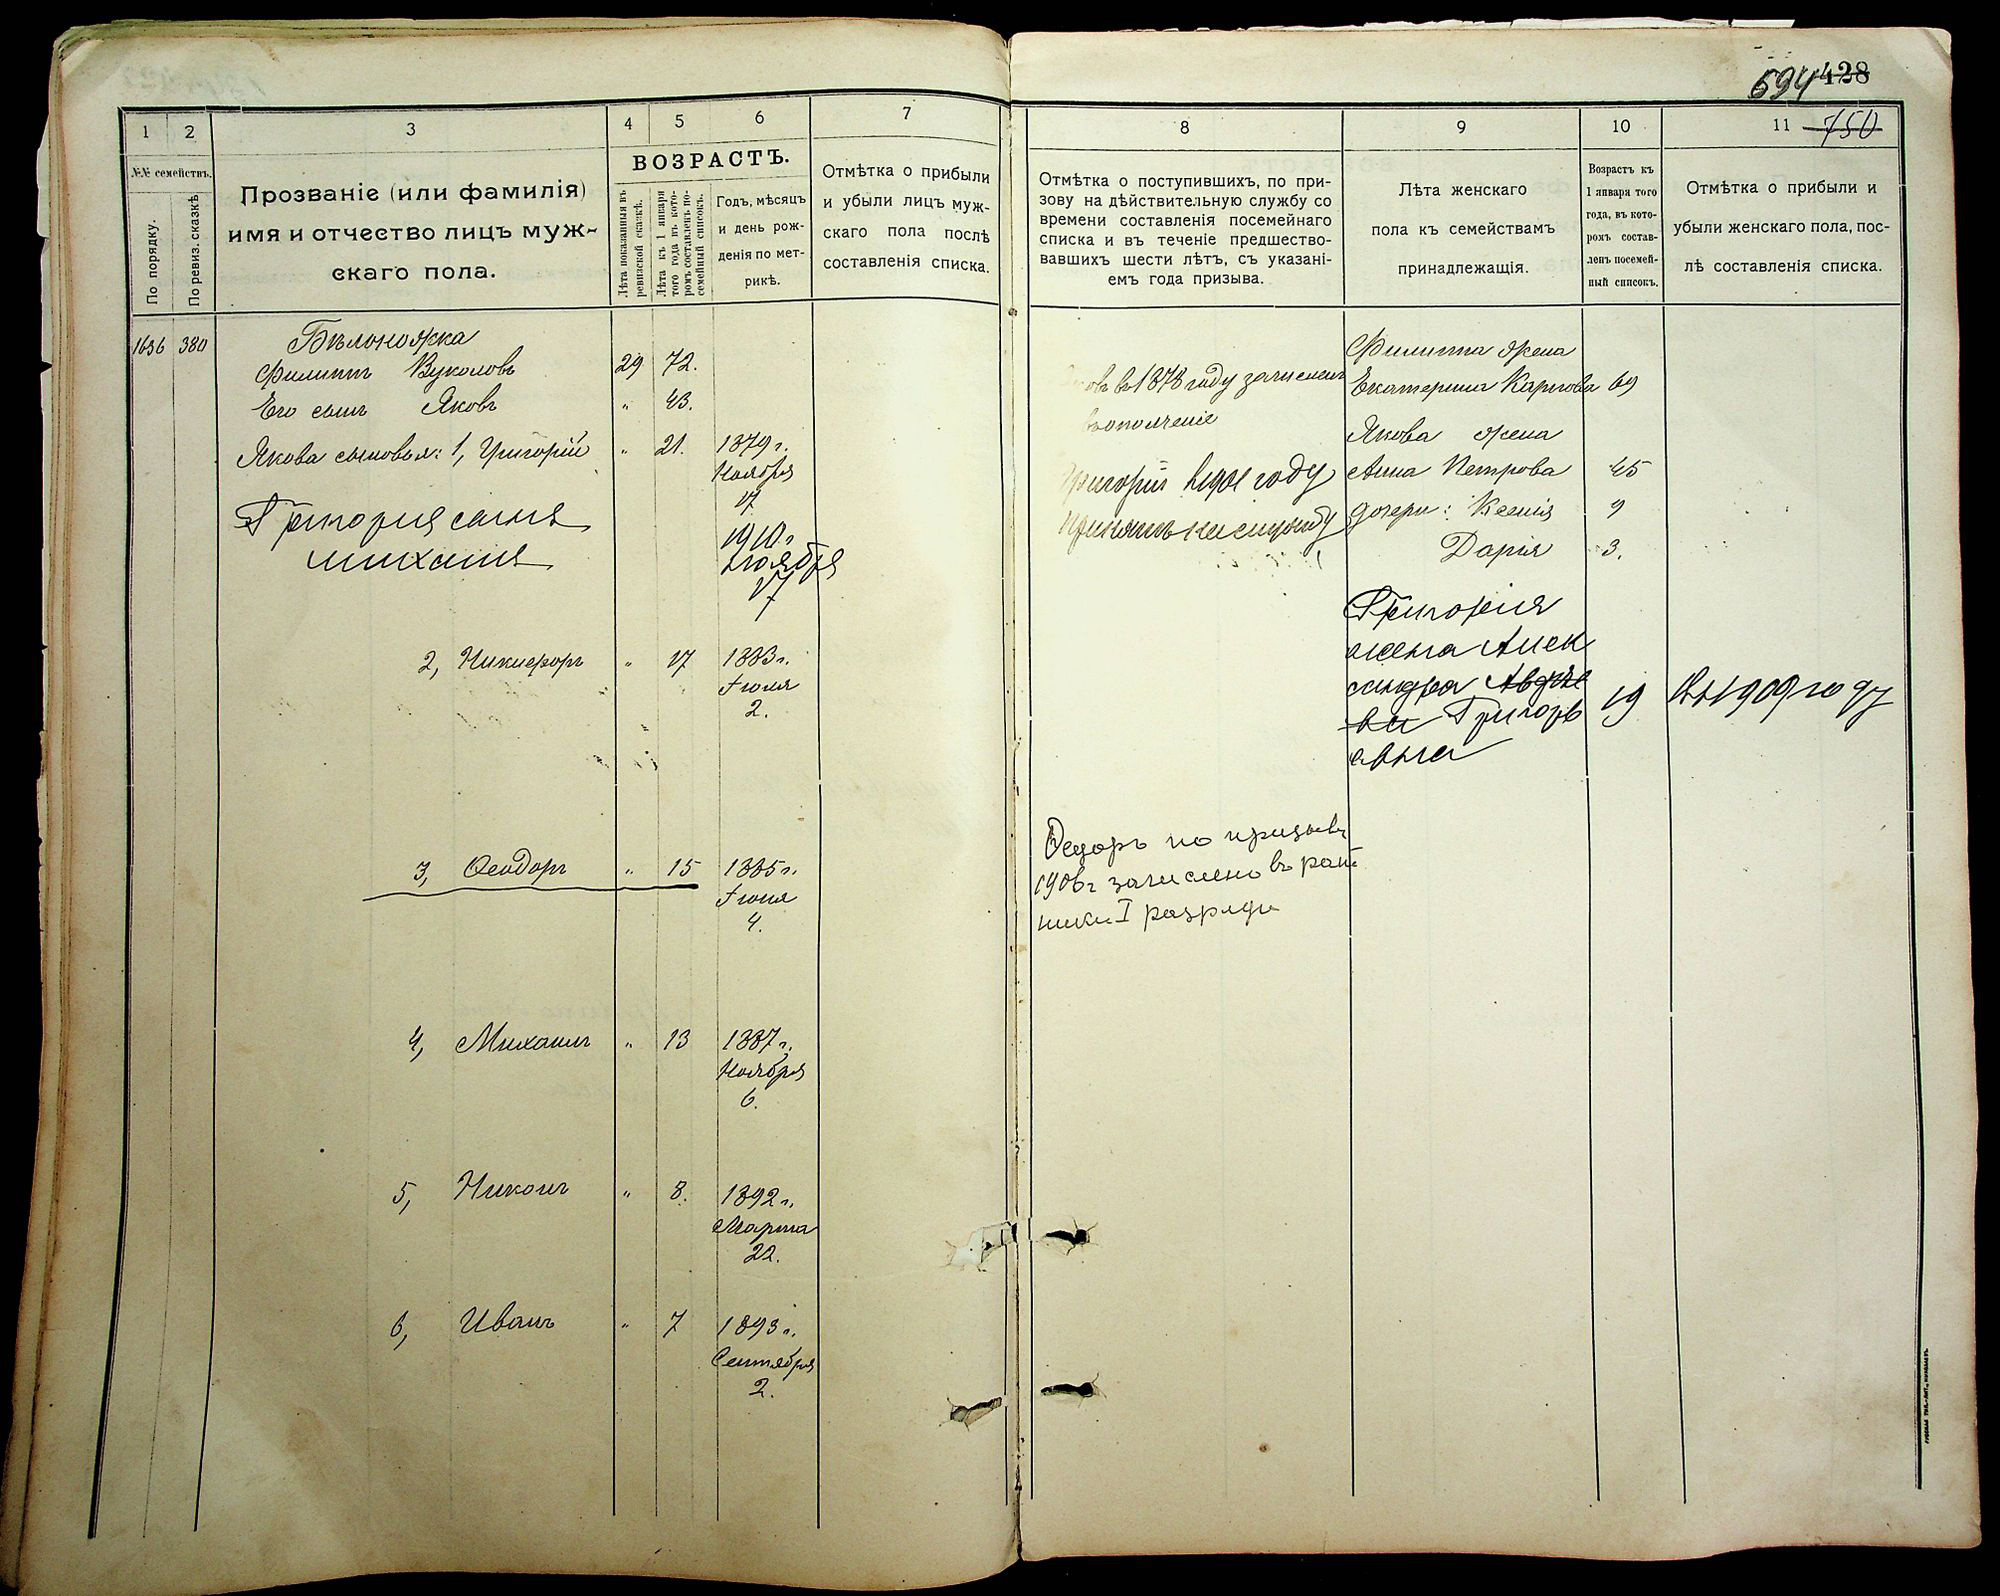 694 428
1
2
3
4
5
6
7
№№ семействъ.
По порядку.
По ревиз. сказкѣ
Прозваніе (или фамилія)
имя и отчество лицъ муж-
скаго пола.
ВОЗРАСТЪ.
Лѣта показанныя въ
ревизской сказкѣ.
Лѣта къ 1 января
того года въ кото-
ромъ составленъ по-
семейный списокъ.
Годъ, мѣсяцъ
и день рож-
денія по мет-
рикѣ.
Отмѣтка о прибыли
и убыли лицъ муж-
скаго пола послѣ
составленія списка.
8
9
10
11 750
Отмѣтка о поступившихъ, по при-
зову на дѣйствительную службу со
времени составленія посемейнаго
списка и въ теченіе предшество-
вавшихъ шести лѣтъ, съ указані-
емъ года призыва.
Лѣта женскаго
пола къ семействамъ
принадлежащія.
Возрастъ къ
1 января того
года, въ кото-
ромъ состав-
ленъ посемей-
ный списокъ.
Отмѣтка о прибыли и
убыли женскаго пола, пос-
лѣ составленія списка.
1636 380 Бѣлоножка
Филиппъ Вуколовъ 29 72.
Его сынъ Яковъ " 43.
Якова сыновья: 1, Григорій " 21. 1879 г.
Ноября
17
Григорія сынъ 1910 г.
Михаилъ Ноября
17
2, Никифоръ " 17 1883 г.
Іюля
2.
3, Ѳеодоръ " 15 1885 г.
Іюня
4.
4, Михаилъ " 13 1887 г.
Ноября
6.
5, Никонъ " 8. 1892 г.
Марта
22.
6, Иванъ " 7 1893 г.
Сентября
2.
въ 1878 году зачисленъ
въ ополченіе
Григорій въ 1901 году
принятъ на службу
Ѳедоръ по призыву
1906 г зачисленъ въ рат
ники I разряда
Филиппа жена
Екатерина Карпова 69
Якова жена
Анна Петрова 45
дочери: Ксенія 9
Дарія 3.
Григорія
жена Алек
сандра Авдѣе
ва Григорь 19 въ 1909 году
евна